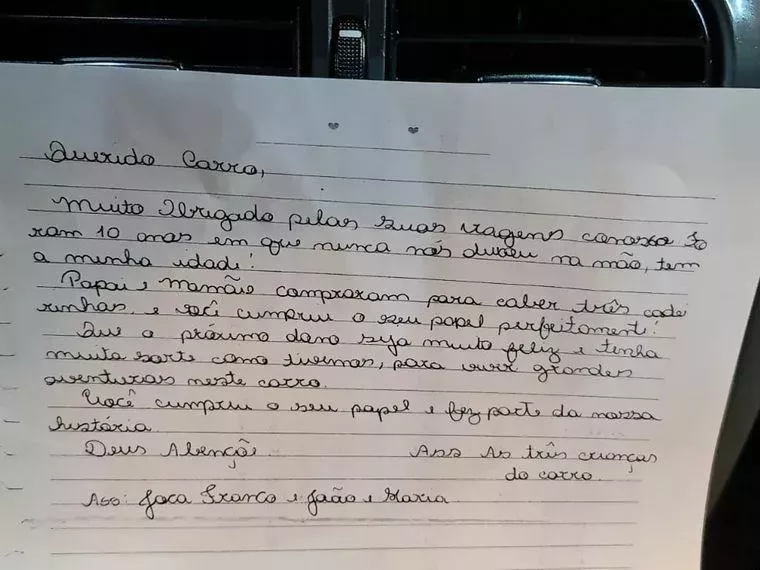 Querido Carro,
Muito Obrigado pelas suas viagens conosco Fo
ram 10 anos em que nunca nós deixou na mão, tem
a minha idade!
Papai e Mamãe compraram para caber três cadei
rinhas, e você cumpriu o seu papel perfeitamente!
Que o próximo dono seja muito feliz e tenha
muita sorte como tivemos, para viver grandes
aventuras neste carro.
Você cumpriu o seu papel e fez parte da nossa
história.
Deus Abençoe
Ass As três crianças
do carro.
Ass: Joca Franco e João e Maria